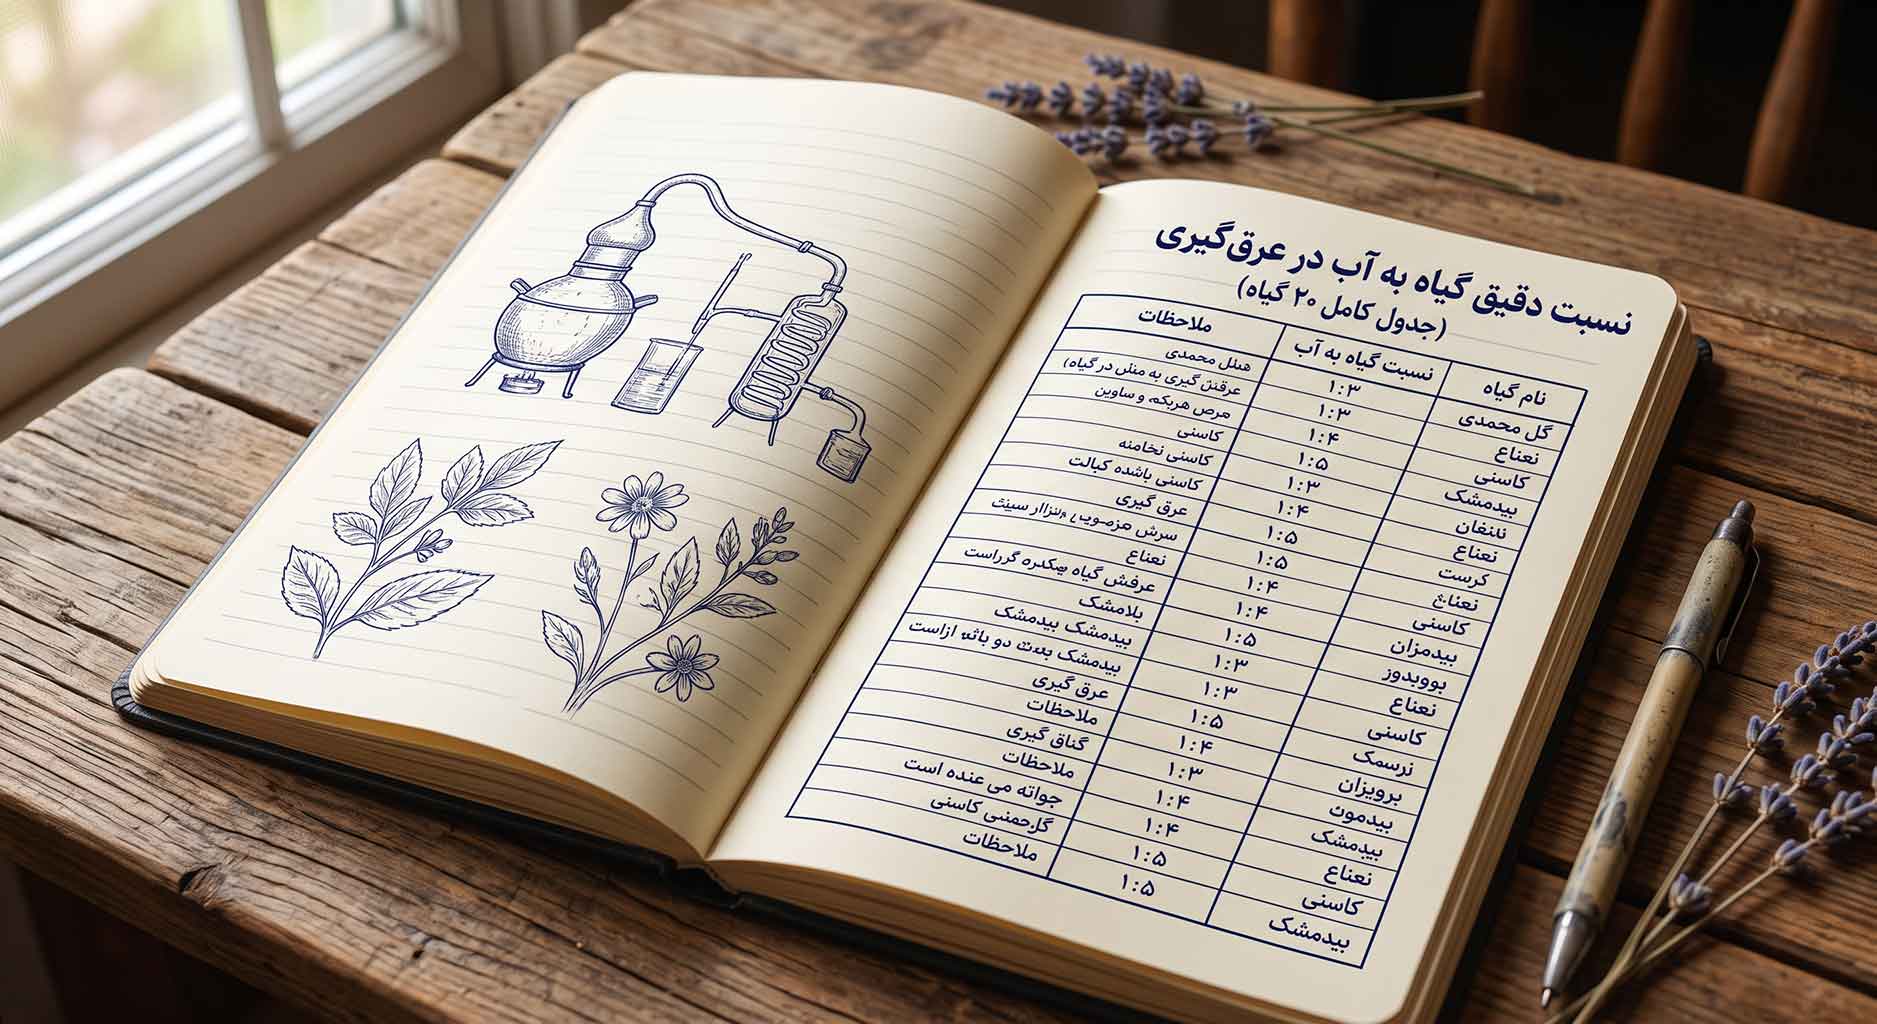 نسبت دقیق گیاه به آب در عرق‌گیری
(جدول کامل ۲۰ گیاه)
نام گیاه نسبت گیاه به آب ملاحظات
گل محمدی ۱:۳ محمدی
نعناع ۱:۳ گیری به در گیاه)
کاسنی ۱:۴ مرص هربکه و ساوین
بیدمشک ۱:۵ کاسنی
نلنغان ۱:۳ کاسنی نخامنه
نعناع ۱:۴ کاسنی باشده کبالت
کرست ۱:۵ عرق گیری
نعناع ۱:۵ سرش
کاسنی ۱:۴ نعناع
بیدمزان ۱:۴ عرفش گیاه گرراست
بوویدوز ۱:۵ بلامشک
نعناع ۱:۳ بیدمشک بیدمشک
کاسنی ۱:۳ بیدمشک دو ازاست
نرسمک ۱:۵ عرق گیری
برویزان ۱:۴ ملاحظات
بیدمون ۱:۳ گناق گیری
بیدمشک ۱:۴ ملاحظات
نعناع ۱:۴ جواته می عنده است
کاسنی ۱:۵ کاسنی
بیدمشک ۱:۵ ملاحظات